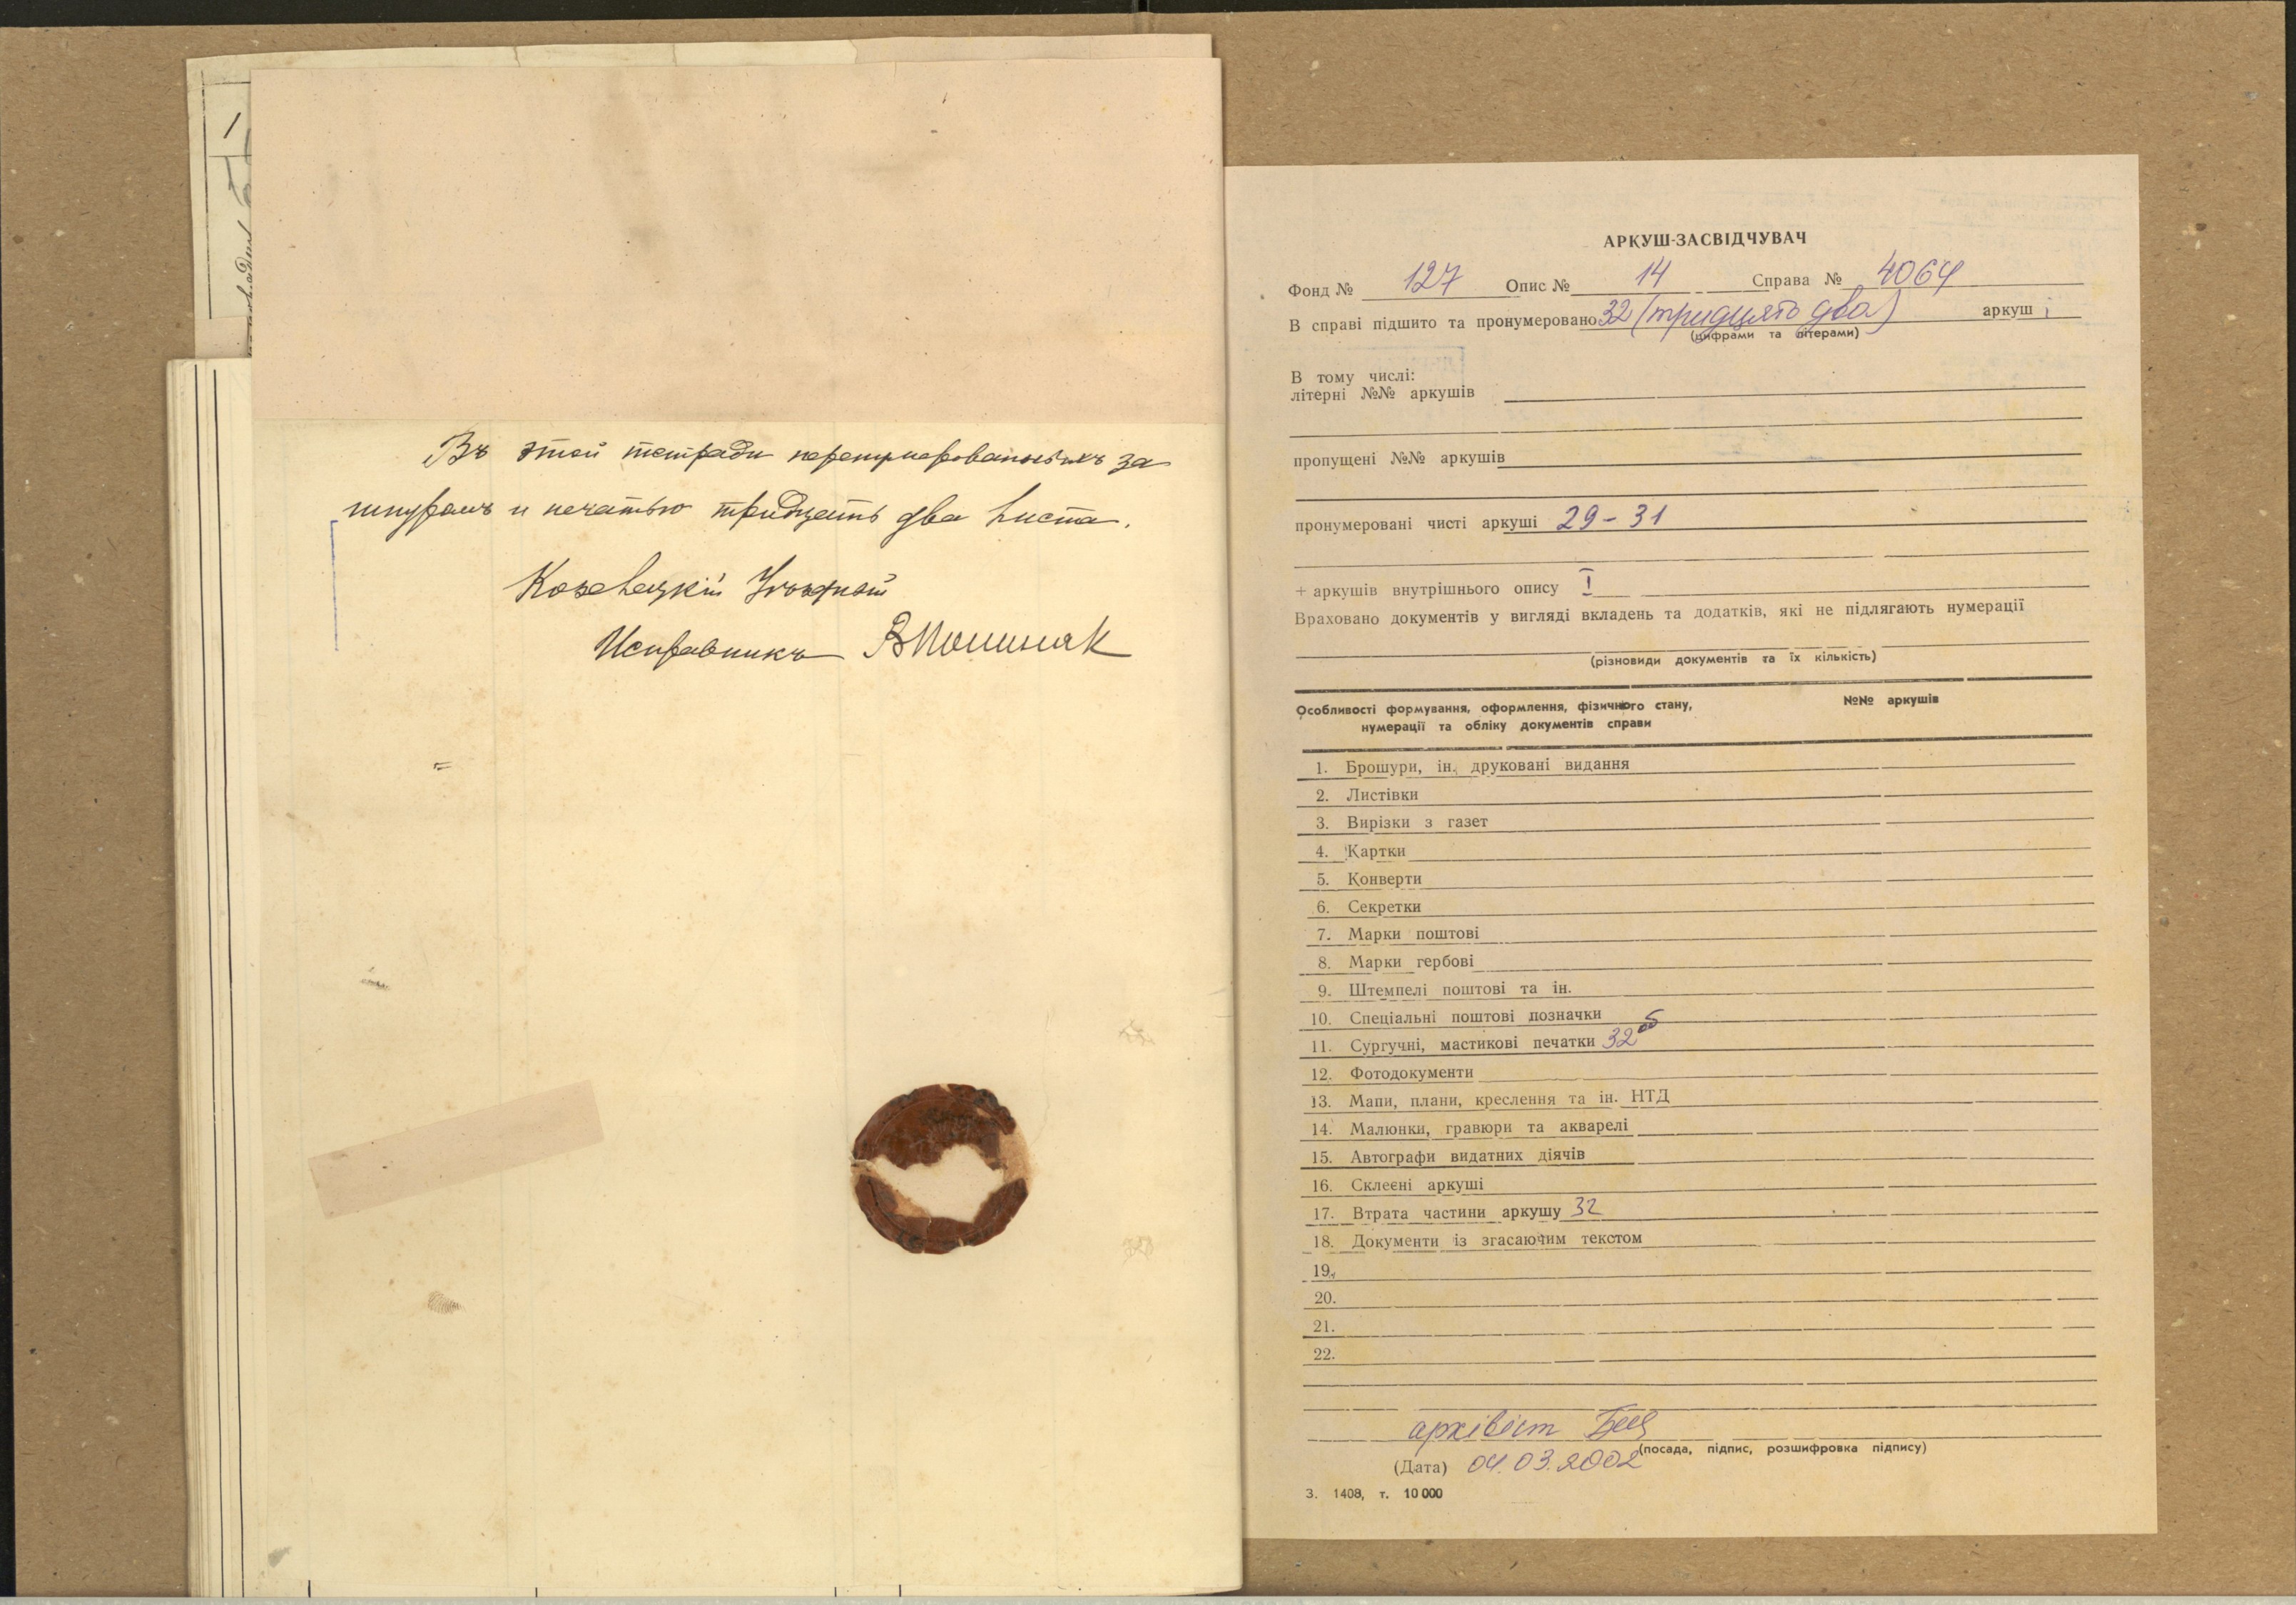 Въ этой тетради перенумерованныхъ за
шнуромъ и печатью тридцать два листа.
Козелецкій Уѣздный
Исправникъ
АРКУШ-ЗАСВІДЧУВАЧ
Фонд № 127 Опис № 14 Справа № 4064
В справі підшито та пронумеровано 32 (тридцять два) аркуш і
(цифрами та літерами)
В тому числі:
літерні №№ аркушів
пропущені №№ аркушів
пронумеровані чисті аркуші 29-31
+ аркушів внутрішнього опису I
Враховано документів у вигляді вкладень та додатків, які не підлягають нумерації
(різновиди документів та їх кількість)
Особливості формування, оформлення, фізичного стану, №№ аркушів
нумерації та обліку документів справи
1. Брошури, ін. друковані видання
2. Листівки
3. Вирізки з газет
4. Картки
5. Конверти
6. Секретки
7. Марки поштові
8. Марки гербові
9. Штемпелі поштові та ін.
10. Спеціальні поштові позначки
11. Сургучні, мастикові печатки 32 об
12. Фотодокументи
13. Мапи, плани, креслення та ін. НТД
14. Малюнки, гравюри та акварелі
15. Автографи видатних діячів
16. Склеєні аркуші
17. Втрата частини аркушу 32
18. Документи із згасаючим текстом
19.
20.
21.
22.
архівіст
(посада, підпис, розшифровка підпису)
(Дата) 04.03.2002
З. 1408, т. 10 000